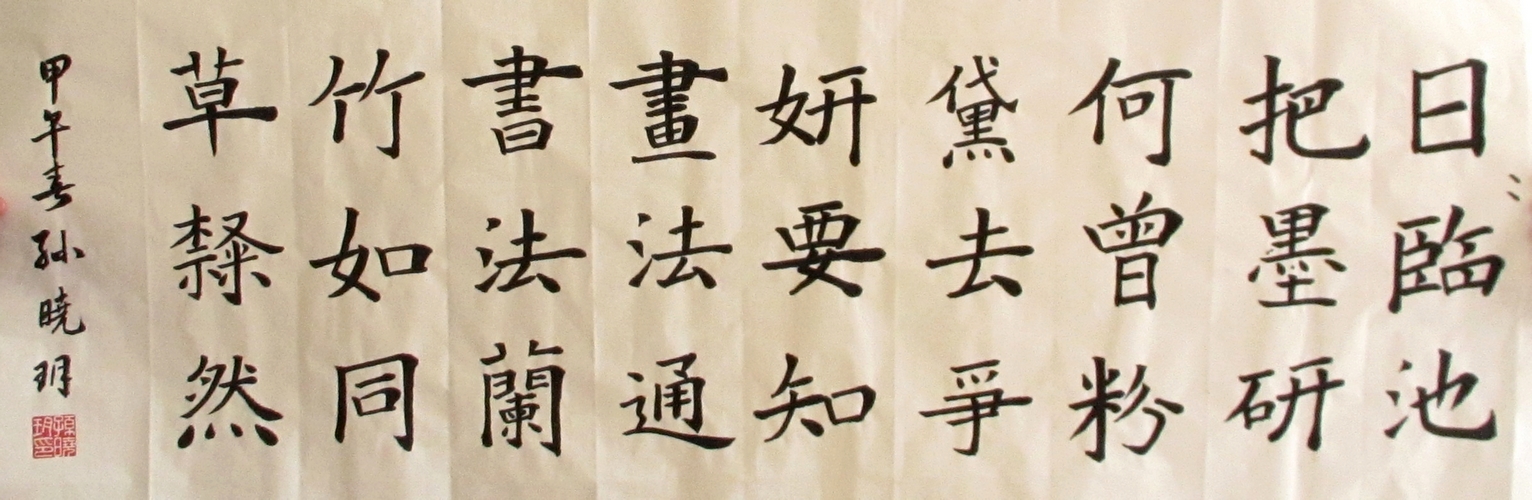 日〻臨池
把墨研
何曾粉
黛去爭
妍要知
畫法通
書法蘭
竹如同
草隸然
甲午春孙晓玥
孫曉玥印